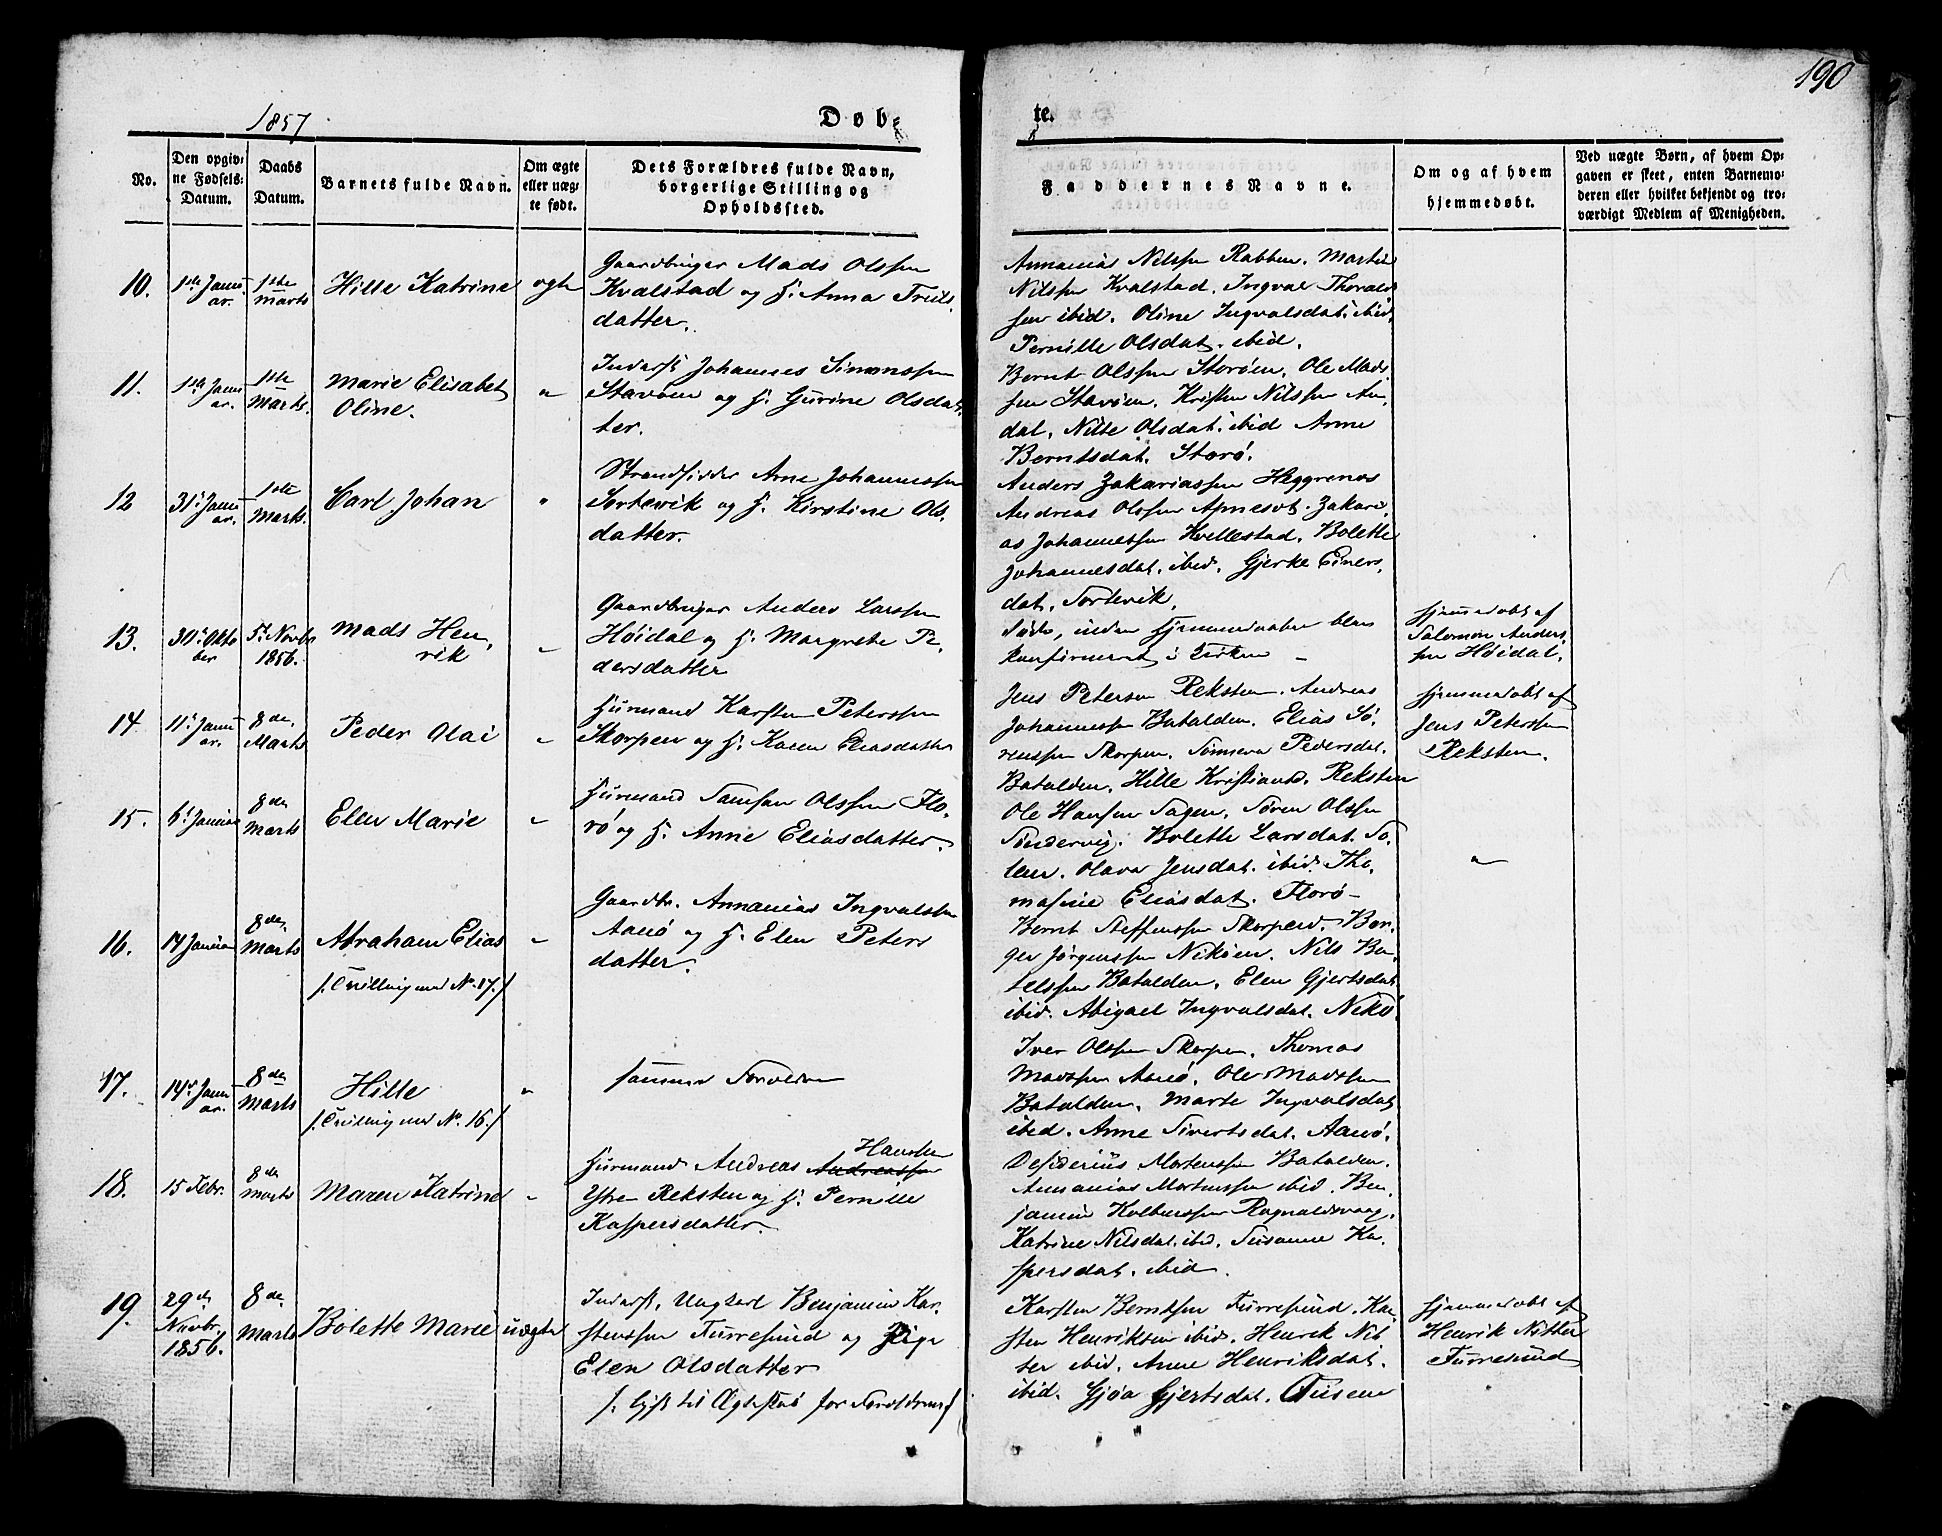 190
1857.
Døb-
te.
No.
Den opgiv-
ne Fødsels-
Datum.
Daabs
Datum.
Barnets fulde Navn.
Om ægte
eller uæg-
te født.
Dets Forældres fulde Navn,
borgerlige Stilling og
Opholdssted.
Faddernes Navne.
Om og af hvem
hjemmedøbt.
Ved uægte Børn, af hvem Op-
gaven er skeet, enten Barnemo-
deren eller hvilket bekjendt og tro-
værdigt Medlem af Menigheden.
10.
1ste Janu
ar.
1ste
Marts
Hille Katrine
ægte
Gaardbruger Mads Olssen
Kvalstad og H. Anna Truls-
datter.
Annanias Nilssen Rabben. Martin
Nilssen Kvalstad. Ingval Thorald-
sen ibid. Oline Ingvalsdat. ibid.
Pernille Olsdat. ibid.
11.
1ste Janu
ar.
1ste
Marts.
Marie Elisabet
Oline.
"
Inderst Johannes Simonssen
Stavøen og H. Gurine Olsdat-
ter.
Bernt Olssen Storøen. Ole Mads-
sen Stavøen. Kristen Nilssen An-
dal. Nille Olsdat. ibid Anne
Berntsdat. Storø.
12
31. Janu
ar.
1ste
Marts.
Carl Johan
"
Strandsidder Arne Johannessen
Sortevik og H. Kirstine Ols-
datter.
Anders Zakariassen Heggrenes
Andreas Olssen Apnesot. Zakari-
as Johannessen Kvellestad. Bolette
Johannesdat. ibid. Gjerke Einers-
dat. Sortevik.
13.
30. Okto
ber
5. Novbr
1856.
Mads Hen-
rik
"
Gaardbruger Anders Larssen
Høidal og H. Margrete Pe-
dersdatter
Døde, inden Hjemmedaaben blev
konfirmeret i Kirken –
Hjemmedøbt af
Salomon Anders-
sen Høidal.
14.
11. Janu
ar.
8de
Marts
Peder Olai
"
Huusmand Karsten Peterssen
Skorpen og H. Karen Eliasdatter
Jens Peterssen Reksten. Andreas
Johannessen Batalden. Elias Sø-
renssen Skorpen. Synneva Pedersdat.
Batalden. Hille Kristiansd. Reksten
Hjemmedøbt af
Jens Peterssen
Reksten.
15.
6. Januar
8de
Marts
Ellen Marie
"
Huusmand Samson Olssen Flo-
rø og H. Anne Eliasdatter.
Ole Hansen Sagen. Søren Olssen
Søndervig. Bolette Larsdat. So-
len. Olava Jensdat. ibid. Tho-
masine Eliasdat. Florø –
"
16.
14 Januar
8de
Marts
Abraham Elias
/: Tvilling med No. 17. :/
"
Gaardbr. Annanias Ingvalssen
Aarø og H. Elen Peters
datter.
Bernt Steffenssen Skorpen. Bør-
ger Jørgenssen Nikøen. Nils Be-
telssen Batalden. Elen Gjertsdat
ibid. Abigael Ingvalsdat. Nikø.
17.
14de Janu
ar.
8de
Marts
Hille
/: Tvilling med No. 16. :/
"
samme Forældre
Iver Olssen Skorpen. Thomas
Madssen Aarø. Ole Madssen
Batalden. Marte Ingvalsdat
ibid. Anne Sivertsdat. Aarø.
18.
15 Febr.
8de
Marts
Maren Katrine
"
Hanssen
Huusmand Andreas Andreassen
Ytre Reksten og H. Pernille
Kaspersdatter.
Desiderius Mortenssen Batalden.
Annanias Mortenssen ibid. Ben-
jamin Kolbenssen Rognaldsvaag.
Katrine Nilsdat. ibid. Susanne Ka-
spersdat. ibid.
19.
29de
Novbr.
1856.
8de
Marts
Bolette Marie
uægte
Inderst, Ungkarl Benjamin Kar-
stenssen Furresund og Pige
Elen Olsdatter
/: lyst til Ægteskab for Forældrene :/
Karsten Berntsen Furresund. Ka-
sten Henriksen ibid. Henrik Nit-
ter ibid. Anne Henriksdat.
ibid. Gjøa Gjertsdat.
Hjemmedøbt af
Henrik Nitter
Furresund